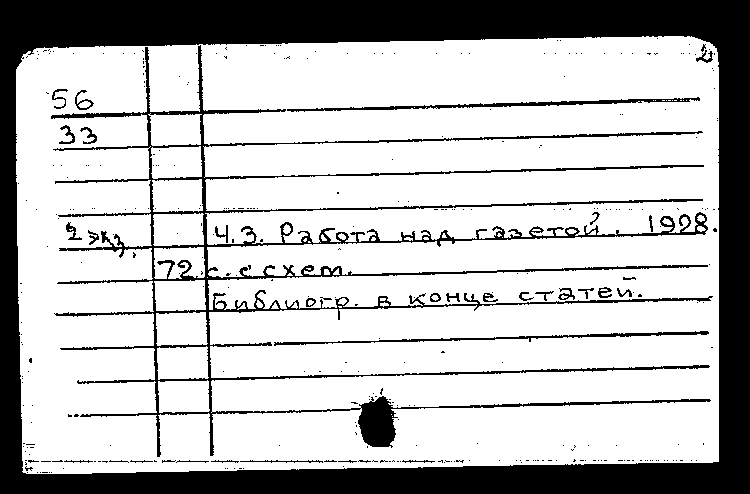 2
56
33
2 экз. Ч.3. Работа над газетой. 1928.
72 с. с схем.
Библиогр. в конце статей.